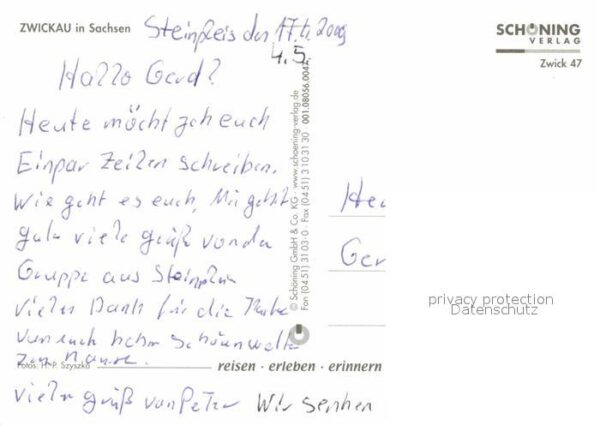 ZWICKAU in Sachsen
Steinpleis den 17.4. 2009
4.5.
SCHÖNING
VERLAG
Zwick 47
Hallo Gerd?
Heute möcht ich euch
Einpar Zeilen schreiben.
Wie geht es euch, Mir geht
gut viele grüß von der
Gruppe aus Steinpleis
vielen Dank für die Karte
von euch
zen Hause.
Fotos: H.-P. Szyszka
viele grüß von Peter Wir
© Schöning GmbH & Co. KG · www.schoening-verlag.de
Fon (04 51) 31 03-0 · Fax (04 51) 3 10 31 30 001.08056.0042
reisen · erleben · erinnern
He
Ger
privacy protection
Datenschutz